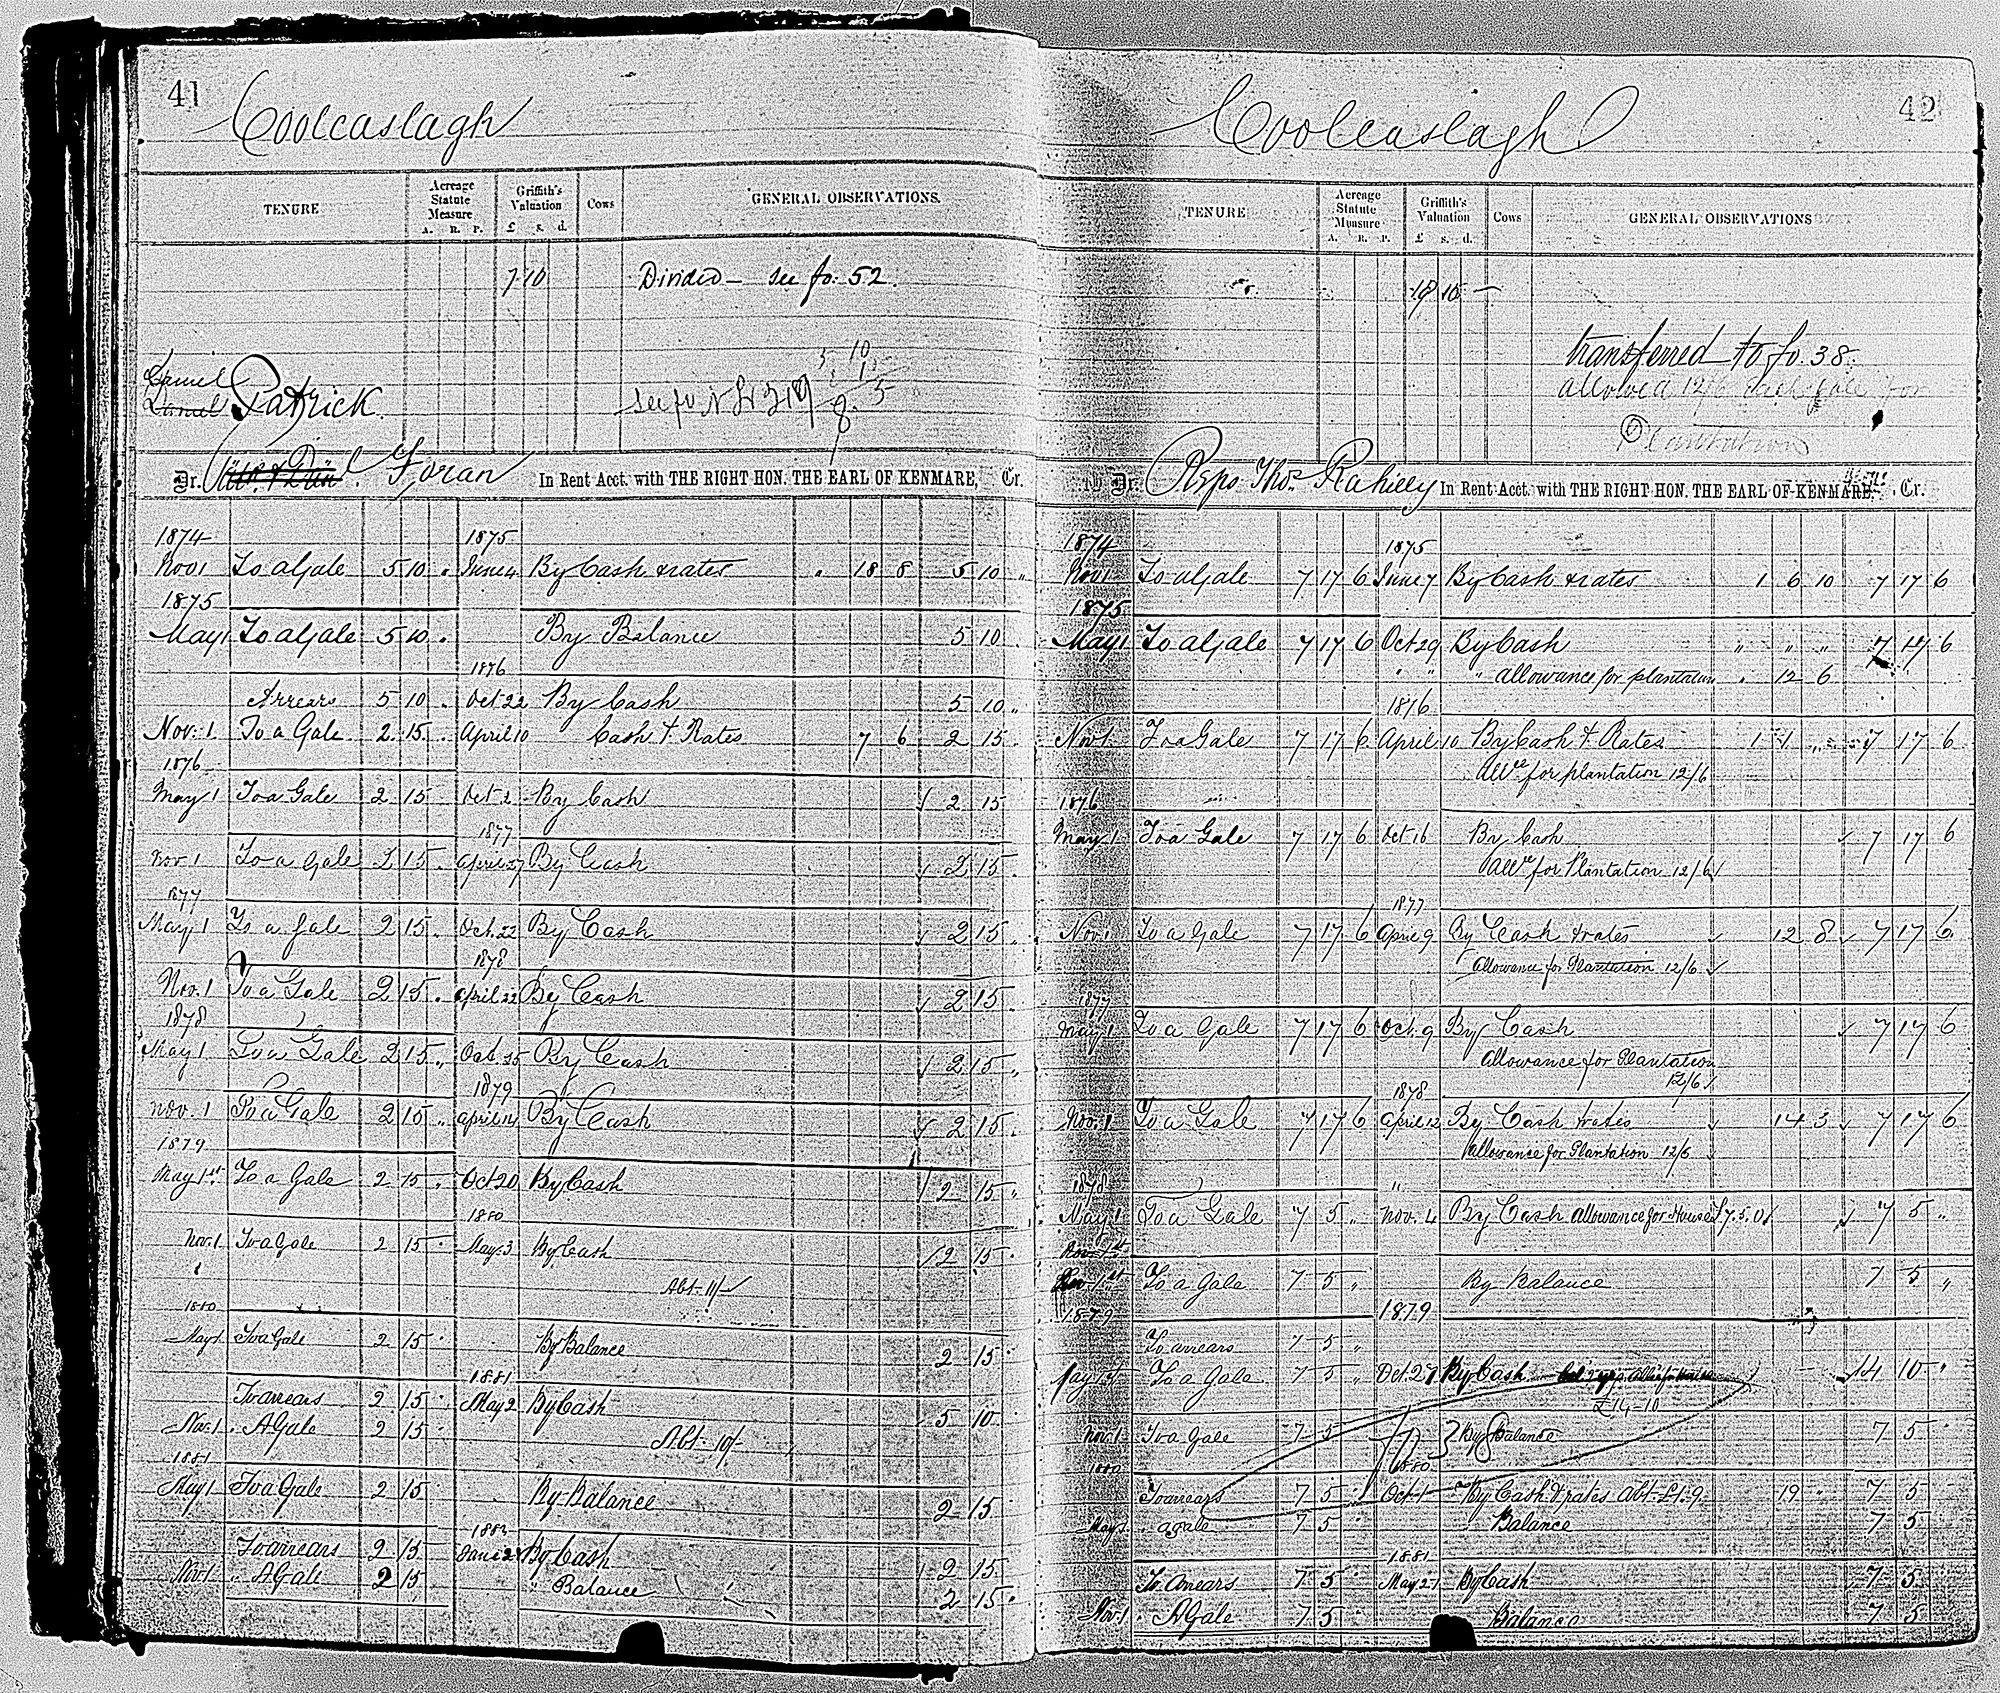 41
Coolcaslagh
TENURE
Acreage Statute Measure
A. R. P.
Griffith's Valuation
£ s. d.
Cows
GENERAL OBSERVATIONS.
7 10
Divided – see fo: 52.
5. 10
Daniel
Daniel Patrick
Foran
Dr.
In Rent Acct. with THE RIGHT HON. THE EARL OF KENMARE,
Cr.
1874 1875
Nov 1 To a Gale 5 10 " June 4 By Cash & rates " 18 8 5 10 "
1875
May 1 To a Gale 5 10 " By Balance 5 10 "
1876
Arrears 5 10 " Oct 22 By Cash 5 10 "
Nov. 1 To a Gale 2 15 " April 10 Cash & Rates 7 6 2 15 "
1876
May 1 To a Gale 2 15 " Oct 2 By Cash 2 15
1877
Nov. 1 To a Gale 2 15 " April 27 By Cash 2 15
1877
May 1 To a Gale 2 15 " Oct. 22 By Cash 2 15 "
1878
Nov. 1 To a Gale 2 15 " April 22 By Cash 2 15 "
1878
May 1 To a Gale 2 15 " Oct. 25 By Cash 2 15 "
1879
Nov. 1 To a Gale 2 15 " April 14 By Cash 2 15 "
1879
May 1st To a Gale 2 15 " Oct 20 By Cash 2 15 "
1880
Nov. 1 To a Gale 2 15 " May. 3 By Cash 2 15 "
Abt. 11/-
1880
May 1 To a Gale 2 15 " By Balance 2 15 "
1881
To arrears 2 15 " May 2 By Cash 5 10 "
Nov. 1 " A Gale 2 15 "
Abt. 10/-
1881
May 1 To a Gale 2 15 By Balance 2 15
To arrears 2 15 By Cash 2 15
Nov. 1 " A Gale 2 15 " Balance 2 15 "
42
Coolcaslagh
TENURE
Acreage Statute Measure
A. R. P.
Griffith's Valuation
£ s. d.
Cows
GENERAL OBSERVATIONS
transferred to fo. 38.
allowed 12/6 each gale for
Plantation
Dr. Reps Thos. Rahilly In Rent Acct. with THE RIGHT HON. THE EARL OF KENMARE, Cr.
1874 1875
Nov 1 To a Gale 7 17 6 June 7 By Cash & rates 1 6 10 7 17 6
1875
May 1 To a Gale 7 17 6 Oct 29 By Cash " " " 7 17 6
" " " allowance for plantation " 12 6
1876
Nov 1 To a Gale 7 17 6 April 10 By Cash & Rates 1 1 " 7 17 6
Allce for plantation 12/6
1876
May 1 To a Gale 7 17 6 Oct 16 By Cash 7 17 6
Allce for Plantation 12/6
1877
Nov 1 To a Gale 7 17 6 April 9 By Cash & rates 12 8 7 17 6
Allowance for Plantation 12/6
1877
May 1 To a Gale 7 17 6 Oct. 9 By Cash 7 17 6
Allowance for Plantation
12/6
1878
Nov. 1 To a Gale 7 17 6 April 12 By Cash & rates 14 3 7 17 6
Allowance for Plantation 12/6
1878 "
May 1 To a Gale 7 5 " Nov. 4 By Cash allowance for House £7.5.0 7 5 "
Nov 1st
Nov 1st To a Gale 7 5 " By Balance 7 5 "
1879 1879
To arrears 7 5 "
May 1st To a Gale 7 5 " Oct. 27 By Cash 14 10 "
£14-10
Nov. 1 To a Gale 7 5 By Balance 7 5
1880 1880
To arrears 7 5 Oct. 1 By Cash & rates Abt. £1.9. 19 " 7 5
May 1 " a gale 7 5 Balance 7 5
1881
To Arrears 7 5 May 21 By Cash 7 5
Nov. 1 " A Gale 7 5 Balance 7 5